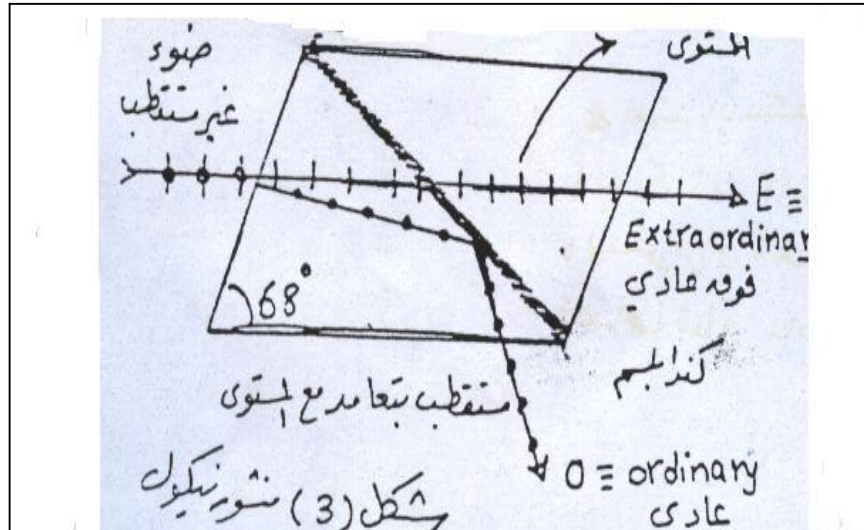 ضوء
غير مستقطب
المستوى
E ≡
Extraordinar
فوق عادي
68°
كندا بلسم
مستقطب بتعامد مع المستوى
O ≡ ordinary
عادي
شكل (3) منشور نيكول